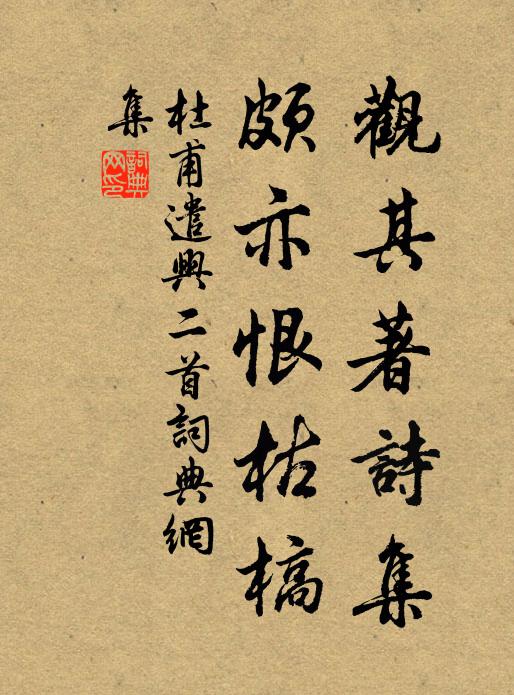 觀其著詩集
頗亦恨枯槁
杜甫遣興二首詞典網
集
詞典網印